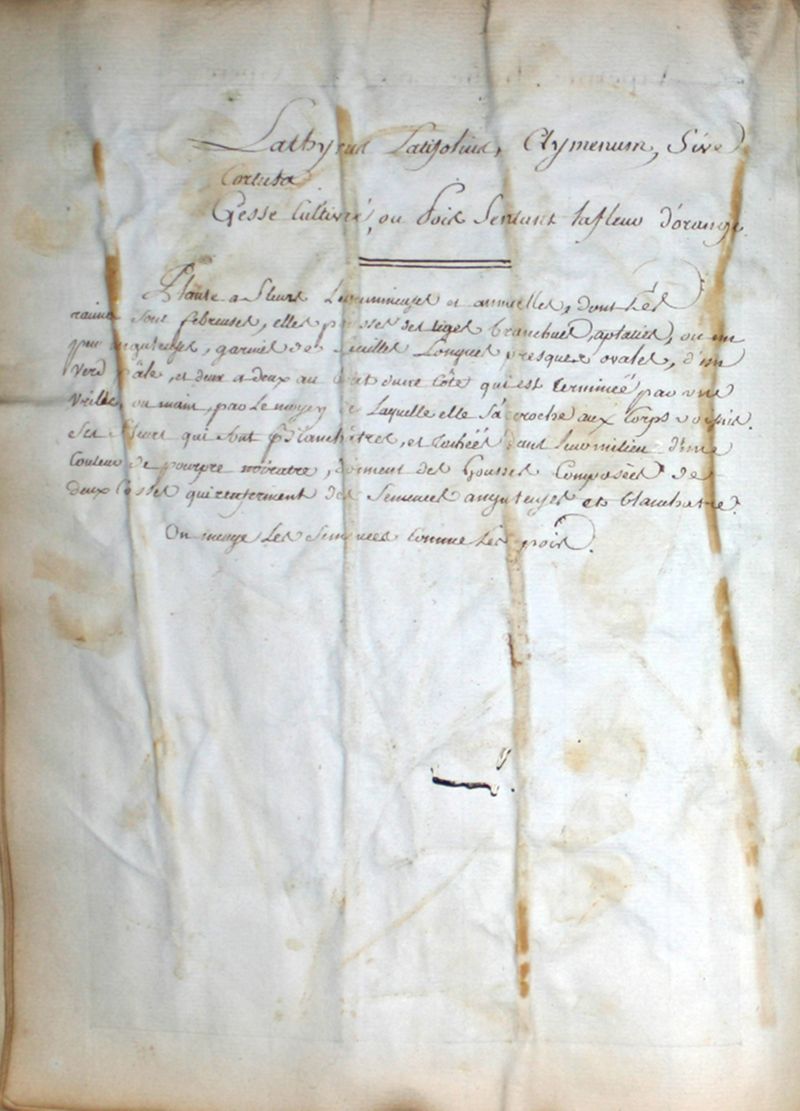 Lathyrus Latifolius, Clymenum, Sive
Gesse Cultivée, ou Pois Sentant la fleur d'orange.
Plante a fleurs Legumineuses et annuelles, dont Les
racines sont fibreuses, elles pousses des tiges branchues, aplaties, ou un
peu anguleuses, garnies de feuilles Longues presques ovales, d'un
verd pâle, et deux a deux au bout d'une Côte qui est terminée par une
vrille, ou main, par Le moyen de Laquelle elle s'accroche aux Corps voisins.
Ses fleurs qui sont blanchâtres, et tachées dans Leur milieu d'une
Couleur de pourpre noirâtre, donnent des Gousses Composées de
deux Cosses qui renferment des Semences anguleuses et blanchatre.
On mange Les Semences Comme Les pois.